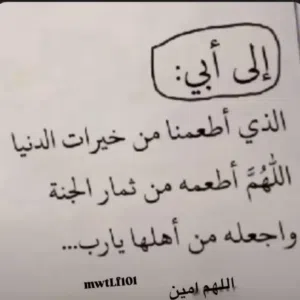 إلى أبي:
الذي أطعمنا من خيرات الدنيا
اللَّهُمَّ أطعمه من ثمار الجنة
واجعله من أهلها يارب...
mwtLf101
اللهم امين